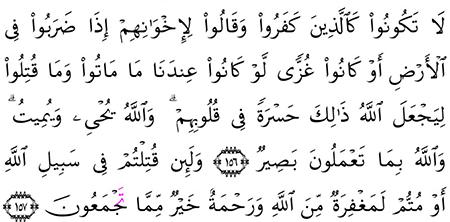 لَا تَكُونُوا۟ كَٱلَّذِينَ كَفَرُوا۟ وَقَالُوا۟ لِإِخْوَٰنِهِمْ إِذَا ضَرَبُوا۟ فِى
ٱلْأَرْضِ أَوْ كَانُوا۟ غُزًّى لَّوْ كَانُوا۟ عِندَنَا مَا مَاتُوا۟ وَمَا قُتِلُوا۟
لِيَجْعَلَ ٱللَّهُ ذَٰلِكَ حَسْرَةً فِى قُلُوبِهِمْ ۗ وَٱللَّهُ يُحْىِۦ وَيُمِيتُ ۗ
وَٱللَّهُ بِمَا تَعْمَلُونَ بَصِيرٌ ﴿١٥٦﴾ وَلَئِن قُتِلْتُمْ فِى سَبِيلِ ٱللَّهِ
أَوْ مُتُّمْ لَمَغْفِرَةٌ مِّنَ ٱللَّهِ وَرَحْمَةٌ خَيْرٌ مِّمَّا تَجْمَعُونَ ﴿١٥٧﴾